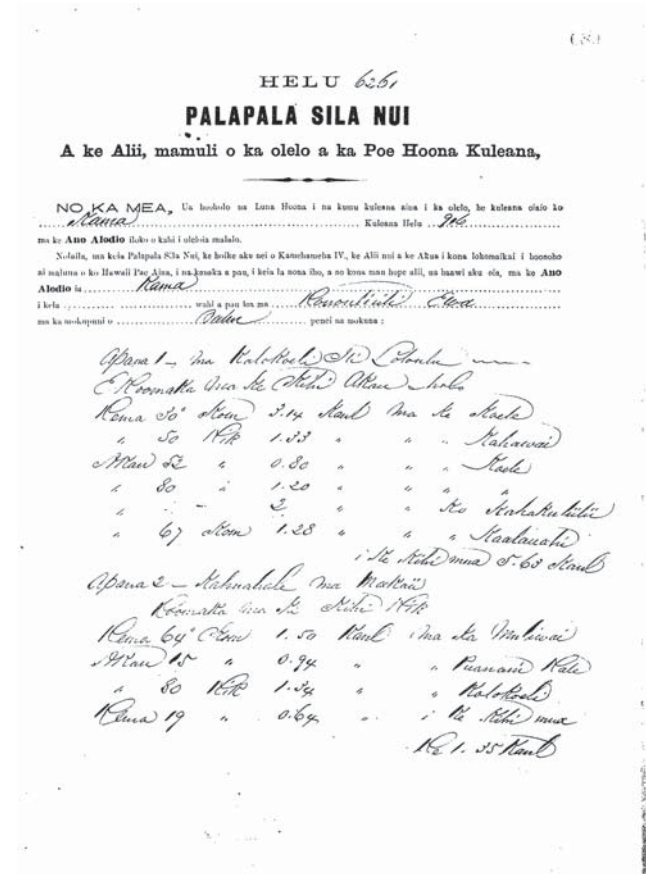 689
HELU 6261
PALAPALA SILA NUI
A ke Alii, mamuli o ka olelo a ka Poe Hoona Kuleana,
NO KA MEA, Ua hooholo na Luna Hoona i na kumu kuleana aina i ka olelo, he kuleana oiaio ko
Kama Kuleana Helu 906
ma ke Ano Alodio iloko o kahi i oleloia malalo.
Nolaila, ma keia Palapala Sila Nui, ke hoike aku nei o Kamehameha IV., ke Alii nui a ke Akua i kona lokomaikai i hoonoho
ai maluna o ko Hawaii Pae Aina, i na kanaka a pau, i keia la nona iho, a no kona mau hope alii, ua haawi aku oia, ma ke Ano
Alodio ia Kama
i kela wahi a pau loa ma Honouliuli Ewa
ma ka mokupuni o Oahu penei na mokuna:
Apana 1 - ma Kalokoeli Ili Loloulu
E Hoomaka ma ke Kihi Akau holo
Hema 30° Kom 3.14 Kaul ma ke Koele
" 50 Hik 1.33 " " " Kahawai
Akau 52 " 0.80 " " " Koele
" 80 " 1.20 " " " "
" 2 " " Ko
" 67 Kom 1.28 " " "
i ke Kihi mua 5.63 Kaul
Apana 2 - Kahuahale ma
Hoomaka ma ke Kihi Hik
Hema 64° Kom 1.50 Kaul ma ka Muliwai
Akau 15 " 0.94 " " Puanani Hale
" 80 Hik 1.34 " " Kalokoeli
Hema 19 " 0.64 " i ke Kihi mua
1.35 Kaul